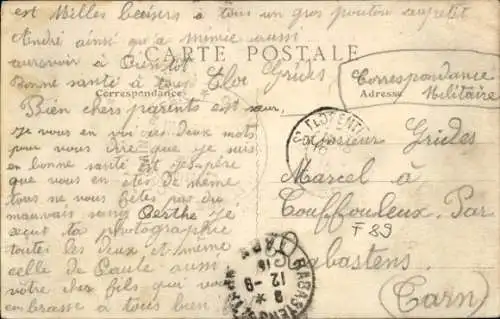 est Milles baisers à tous un gros poutou au petit
André ainsi qu'a mimie aussi
aurevoir à Bientôt
Bonne santé à tous Eloi Grides
CARTE POSTALE
Correspondance
Adresse
Correspondance
Militaire
Bien chers parents est sœur,
je vous en voi ces deux mots
pour vous dire que je suis
en bonne santé est j'espère
que vous en êtes de même
tous ne vous faites pas du
mauvais sang Berthe je
reçut ta photographie
toutes les deux et même
celle de Paule aussi
votre cher fils qui vous
embrasse à tous bien
Monsieur Grides
Marcel à
Couffouleux Par
F 89
Rabastens
(Tarn)
RABASTENS
TARN
12 - 9